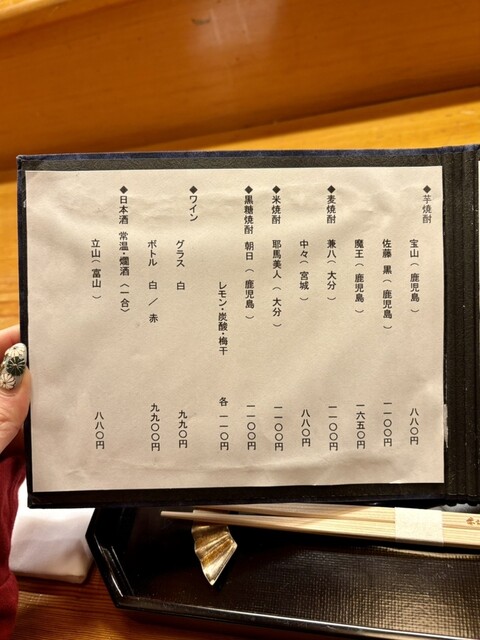 ◆芋焼酎
宝山（鹿児島）　八八〇円
佐藤　黒（鹿児島）　一一〇〇円
魔王（鹿児島）　一六五〇円
◆麦焼酎
兼八（大分）　一一〇〇円
中々（宮城）　八八〇円
◆米焼酎　耶馬美人（大分）　一一〇〇円
◆黒糖焼酎　朝日（鹿児島）　一一〇〇円
レモン・炭酸・梅干　各　一一〇円
◆ワイン
グラス　白　九九〇円
ボトル　白　／　赤　九九〇〇円
◆日本酒　常温・燗酒（一合）
立山（富山）　八八〇円